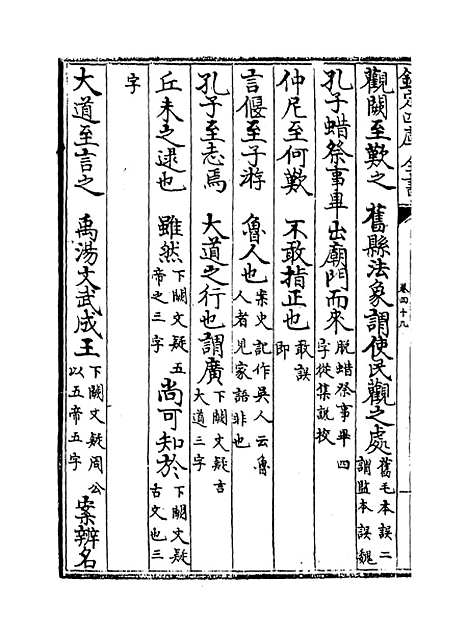 欽定四庫全書
卷四十九
觀闕至歎之　舊縣法象謂使民觀之處舊毛本誤二謂監本誤魏
孔子蜡祭事畢出廟門而來脫蜡祭事畢四字從集說挍
仲尼至何歎　不敢指正也敢誤即
言偃至子游　魯人也案史記作吳人云魯人者見家語非也
孔子至志焉　大道之行也謂廣下闕文疑言大道三字
丘未之逮也　雖然下闕文疑五帝之三字　尚可知於下闕文疑古文也三
字
大道至言之　禹湯文武成王下闕文疑周公以五帝五字　案辨名